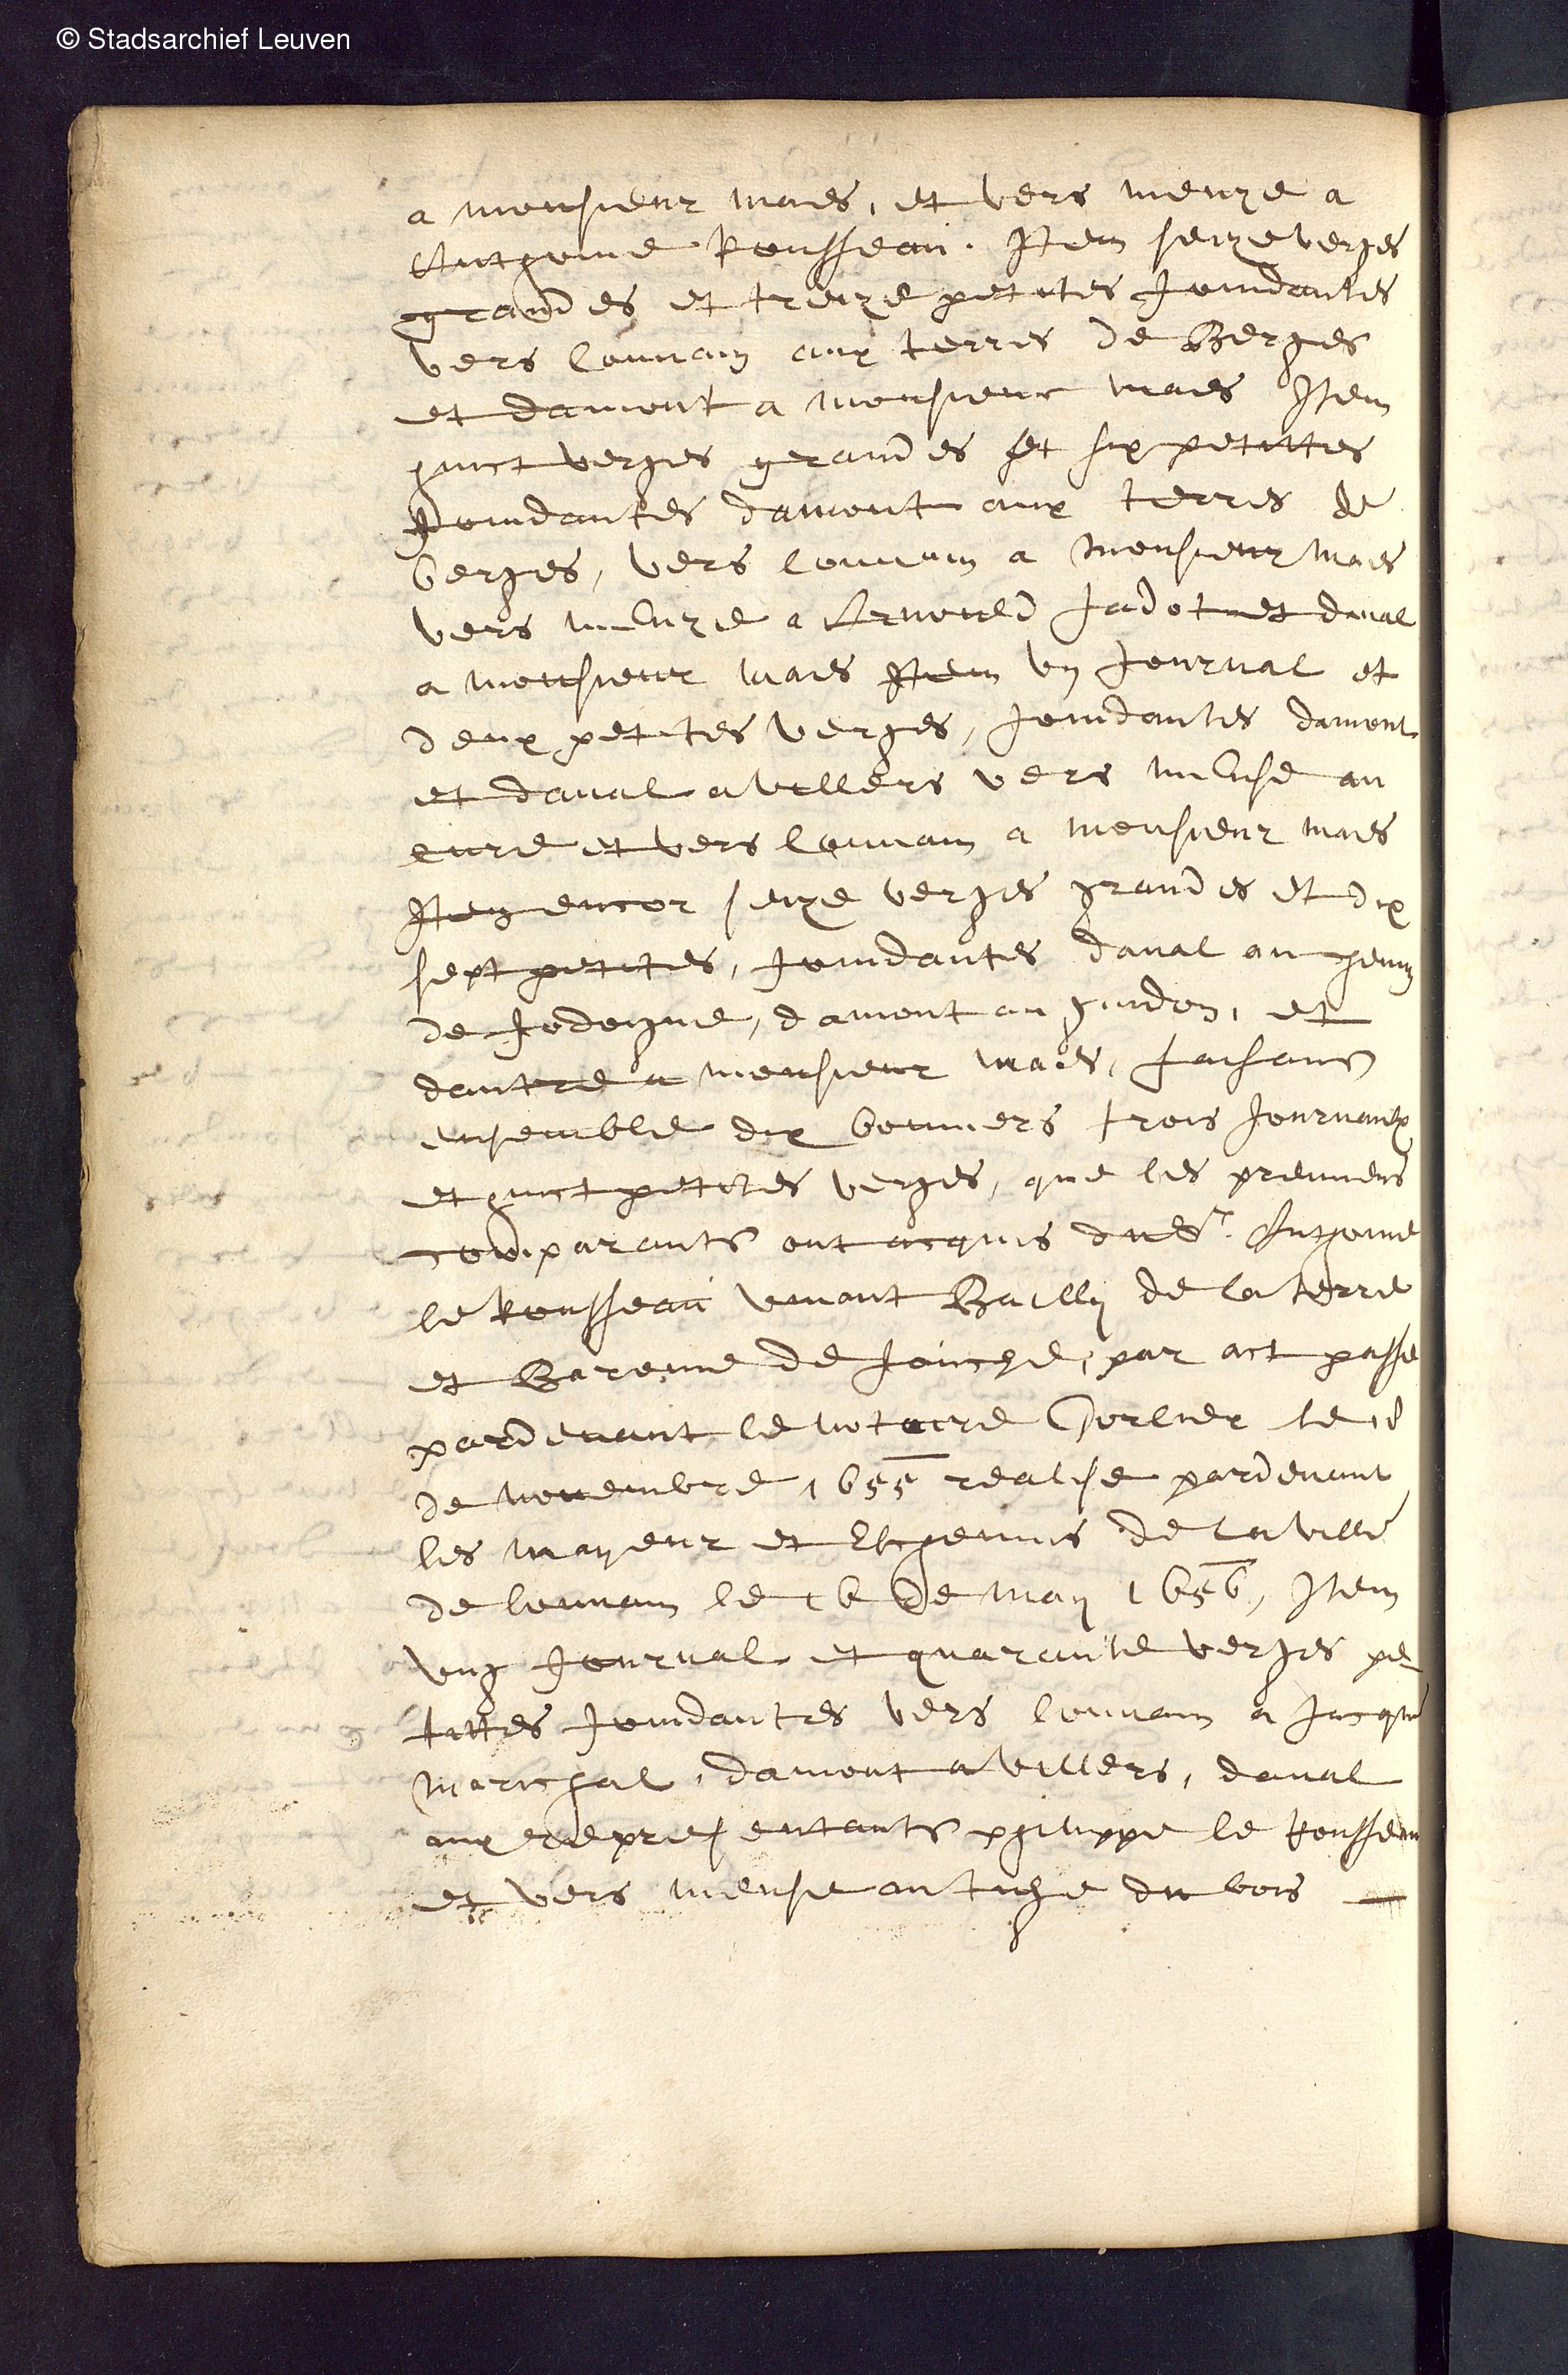 © Stadsarchief Leuven
a monsieur maes, et vers meuze a
Anthoine Rousseau. Item seize verges
grandes et treize petittes joindantes
vers louvain aux terres de Berges
et damont a monsieur maes Item
huict verges grandes et six petittes
Joindantes damont aux terres de
berges, vers louvain a monsieur maes
vers meuze a Arnould Jadot et daval
a monsieur maes Item un Journal et
deux petites verges, joindantes damont
et daval a villers vers meuse au
curé et vers louvain a monsieur maes
Item encor seize verges grandes et dix
sept petites, joindantes daval au
de Jodoigne, damont au, et
dautre a monsieur maes, faisans
ensemble dix bonniers trois journaulx
et huict petites verges, que les premiers
comparants ont acquis du Sr. Anthoine
le Rousseau vivant Bailly de la terre
et Baronne de Jauche, par act passé
pardevant le notaire le 18
de novembre 1655 realisé pardevant
les mayeur et Eschevins de la ville
de louvain le 16 de may 1656, Item
ung Journal et quarante verges pe
tittes joindantes vers louvain a Jacque
marichal, damont a villers, daval
aux representants philippe le Rousseau
et vers meuse au du bois